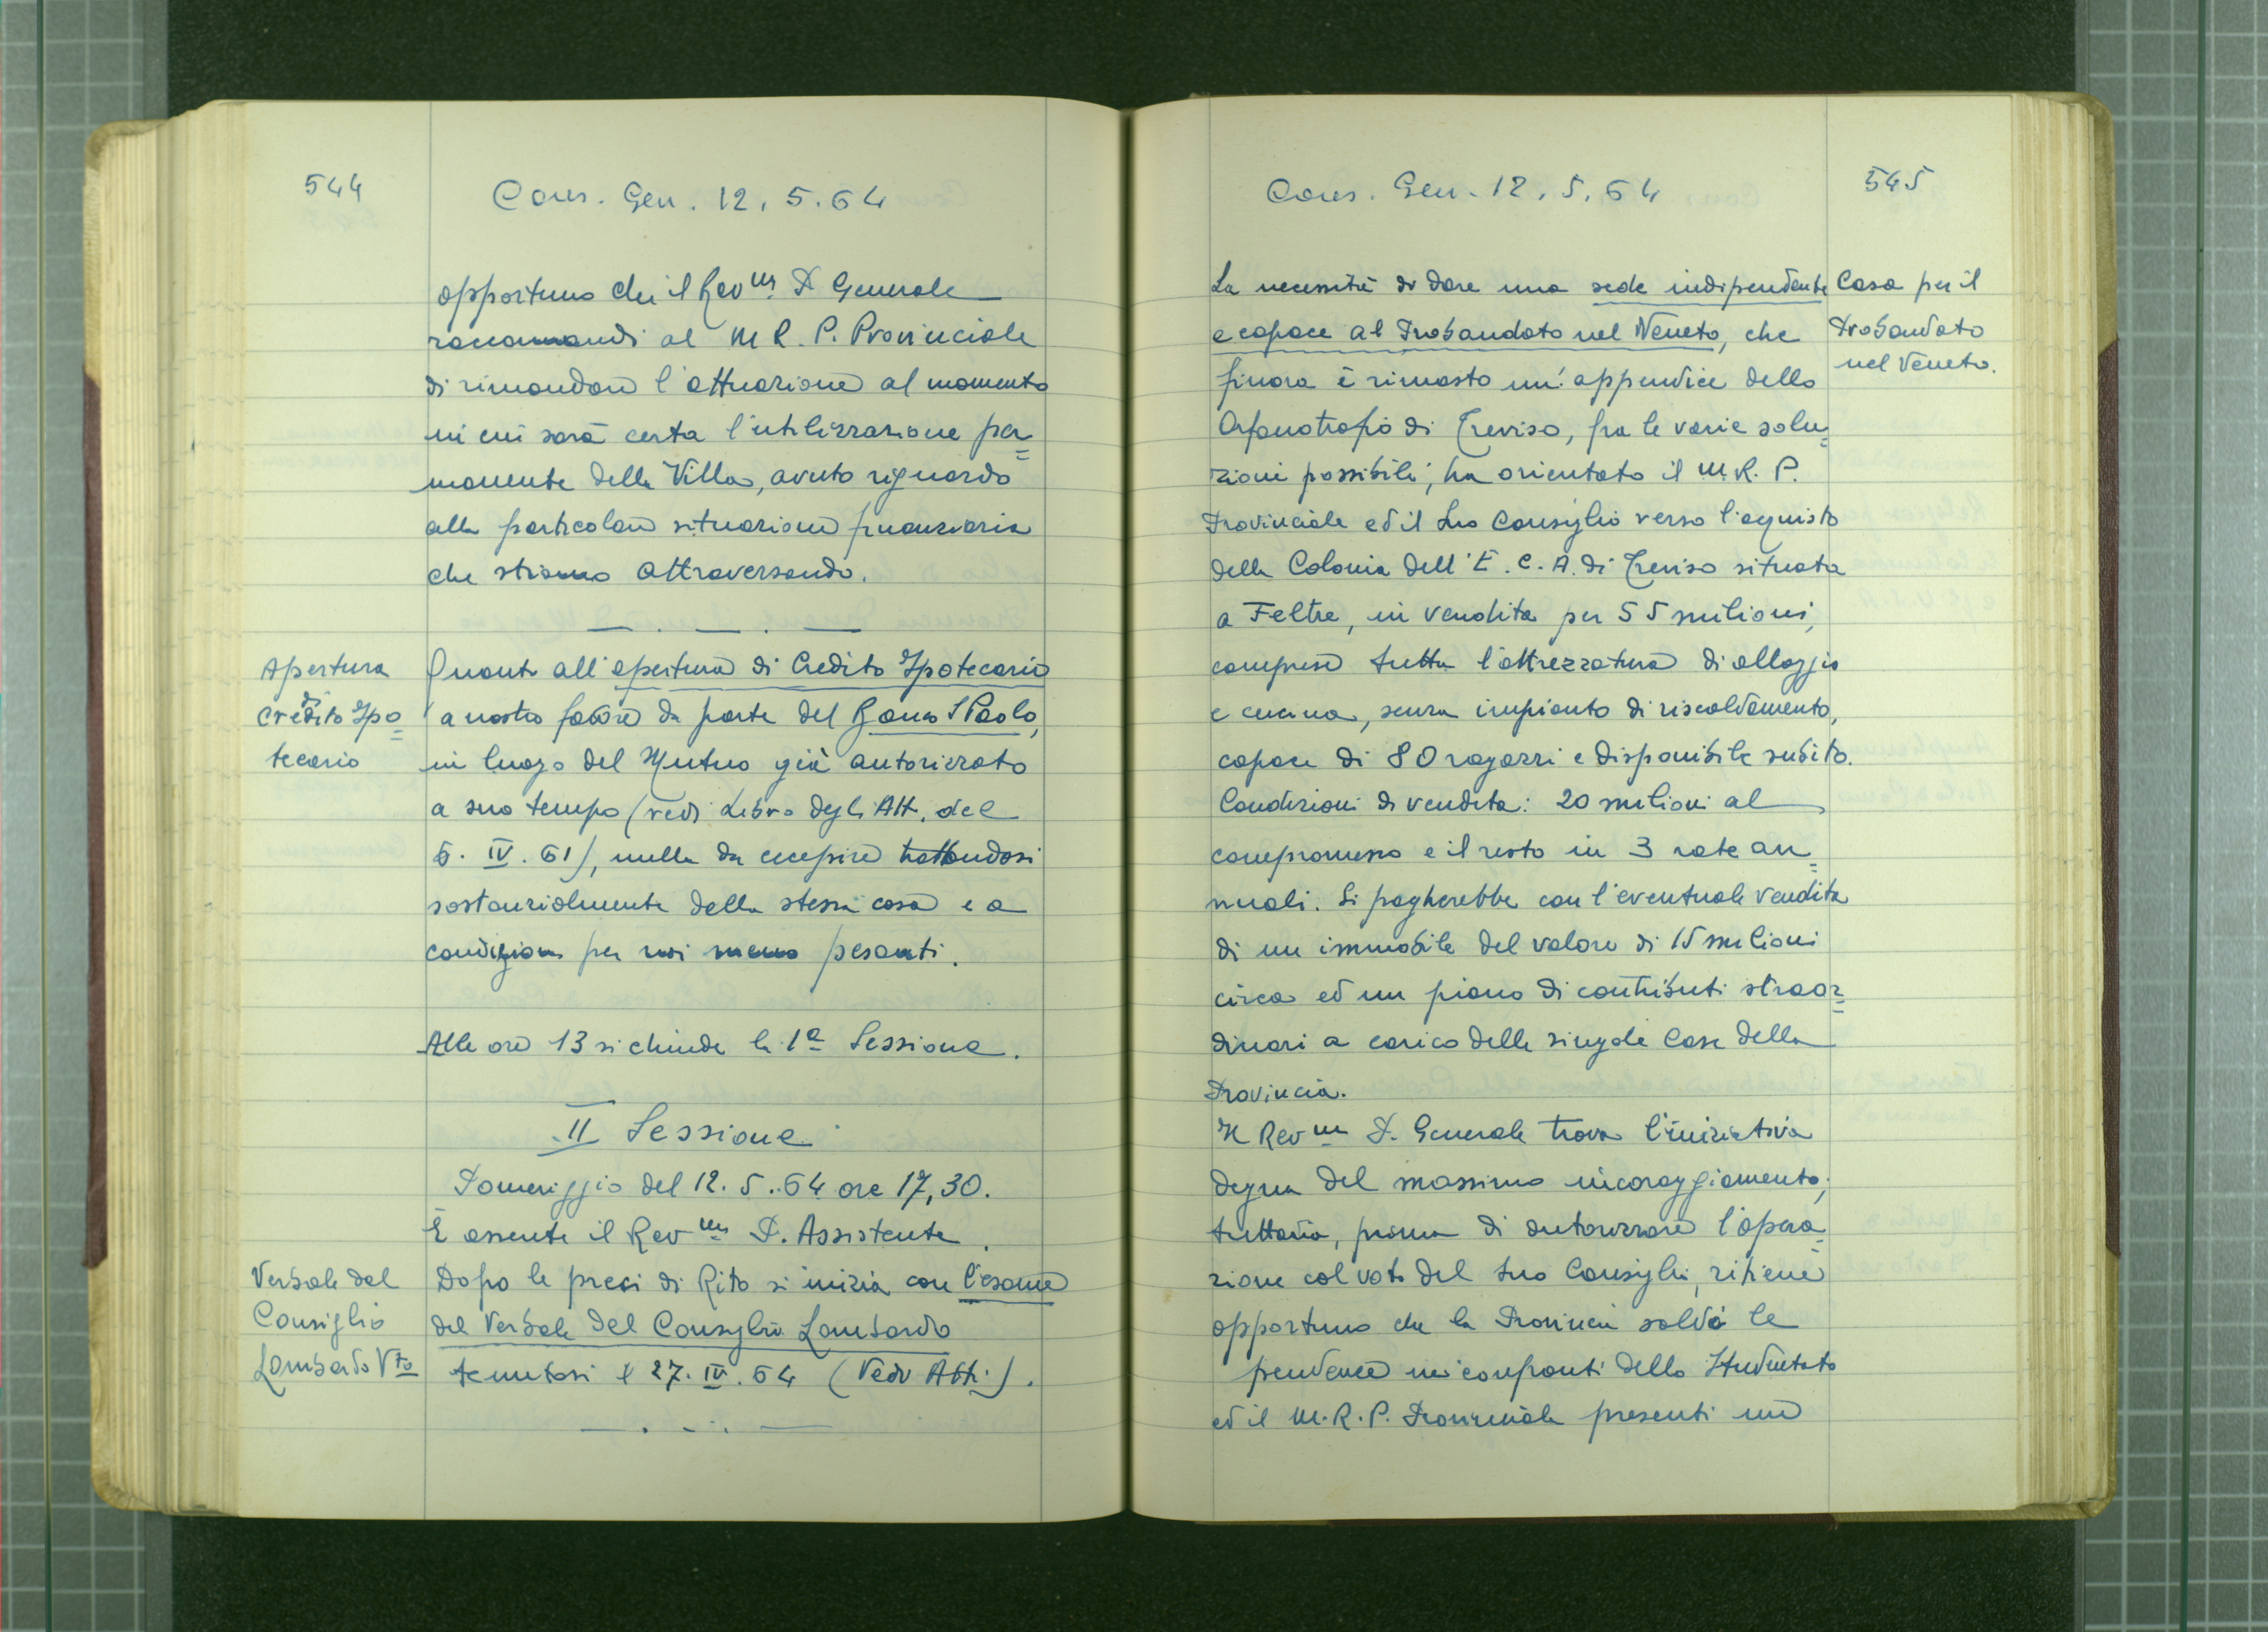 544
Cons. Gen. 12. 5. 64
opportuno che il Rev.mo P. Generale
raccomandi al M. R. P. Provinciale
di rimandare l'attuazione al momento
in cui sarà certa l'utilizzazione per=
manente della Villa, avuto riguardo
alla particolare situazione finanziaria
che stiamo attraversando.
Apertura
di
Credito Ipo=
tecario
Quanto all'apertura di Credito Ipotecario
a nostro favore da parte del Banco S Paolo,
in luogo del Mutuo già autorizzato
a suo tempo (vedi Libro degli Atti, del
5. IV. 61), nulla da eccepire trattandosi
sostanzialmente della stessa cosa e a
condizioni per noi meno pesanti.
Alle ore 13 si chiude la 1a Sessione.
II Sessione
Pomeriggio del 12. 5. 64 ore 17,30.
È assente il Rev.mo P. Assistente.
Verbale del
Consiglio
Lombardo Vto
Dopo le preci di Rito si inizia con l'esame
del Verbale del Consiglio Lombardo
tenutosi il 27. IV. 64 (Vedi Atti).
Cons. Gen. 12. 5. 64
545
La necessità di dare una sede indipendente
e capace al Probandato nel Veneto, che
finora è rimasto un'appendice dello
Orfanotrofio di Treviso, fra le varie solu=
zioni possibili, ha orientato il M. R. P.
Provinciale ed il suo Consiglio verso l'aquisto
della Colonia dell'E. C. A. di Treviso situata
a Feltre, in vendita per 55 milioni,
compresa tutta l'attrezzatura di alloggio
e cucina, senza impianto di riscaldamento,
capace di 80 ragazzi e disponibile subito.
Condizioni di vendita: 20 milioni al
compromesso e il resto in 3 rate an=
nuali. Si pagherebbe con l'eventuale vendita
di un immobile del valore di 15 milioni
circa ed un piano di contributi straor=
dinari a carico delle singole Case della
Provincia.
Il Rev.mo P. Generale trova l'iniziativa
degna del massimo incoraggiamento;
tuttavia, prima di autorizzare l'opera=
zione col voto del suo Consiglio, ritiene
opportuno che la Provincia saldi le
pendenze nei confronti dello Studentato
ed il M. R. P. Provinciale presenti un
Casa per il
Probandato
nel Veneto.